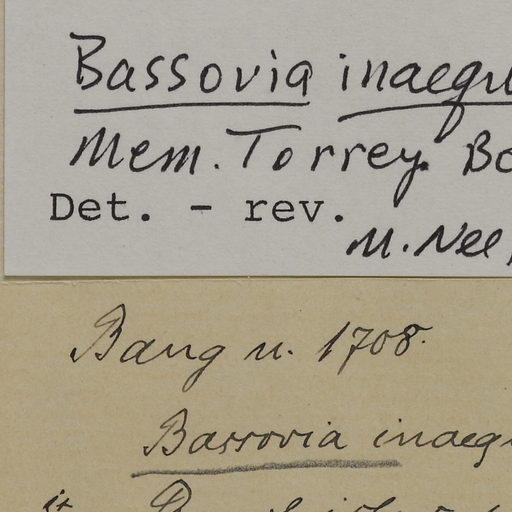 Bassovia inaequ
Mem. Torrey. Bo
Det. - rev.
M. Nee
Bang n. 1708.
Bassovia inaeq